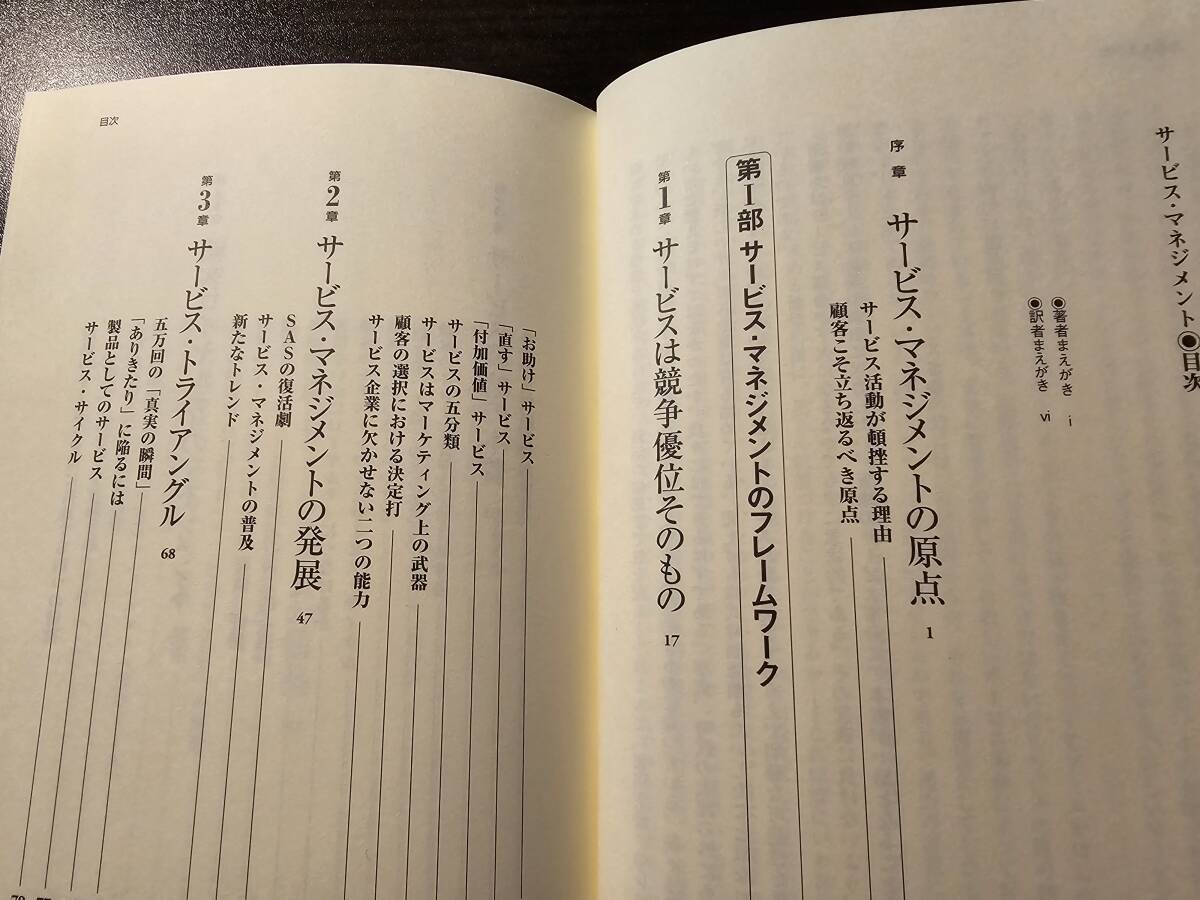 サービス・マネジメント◉目次
◉著者まえがき i
◉訳者まえがき vi
序章 サービス・マネジメントの原点 1
サービス活動が頓挫する理由
顧客こそ立ち返るべき原点
第Ⅰ部 サービス・マネジメントのフレームワーク
第1章 サービスは競争優位そのもの 17
目次
「お助け」サービス
「直す」サービス
「付加価値」サービス
サービスの五分類
サービスはマーケティング上の武器
顧客の選択における決定打
サービス企業に欠かせない二つの能力
第2章 サービス・マネジメントの発展 47
SASの復活劇
サービス・マネジメントの普及
新たなトレンド
第3章 サービス・トライアングル 68
五万回の「真実の瞬間」
「ありきたり」に陥るには
製品としてのサービス
サービス・サイクル